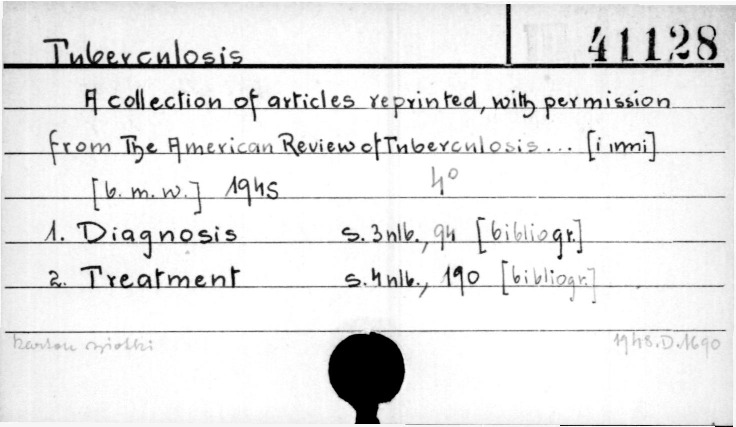 Tuberculosis 41128
A collection of articles reprinted, with permission
from The American Review of Tuberculosis... [i inni]
[b. m. w.] 1945 4°
1. Diagnosis s. 3 nlb., 94 [bibliogr.]
2. Treatment s. 4 nlb., 190 [bibliogr.]
1948.D.1690